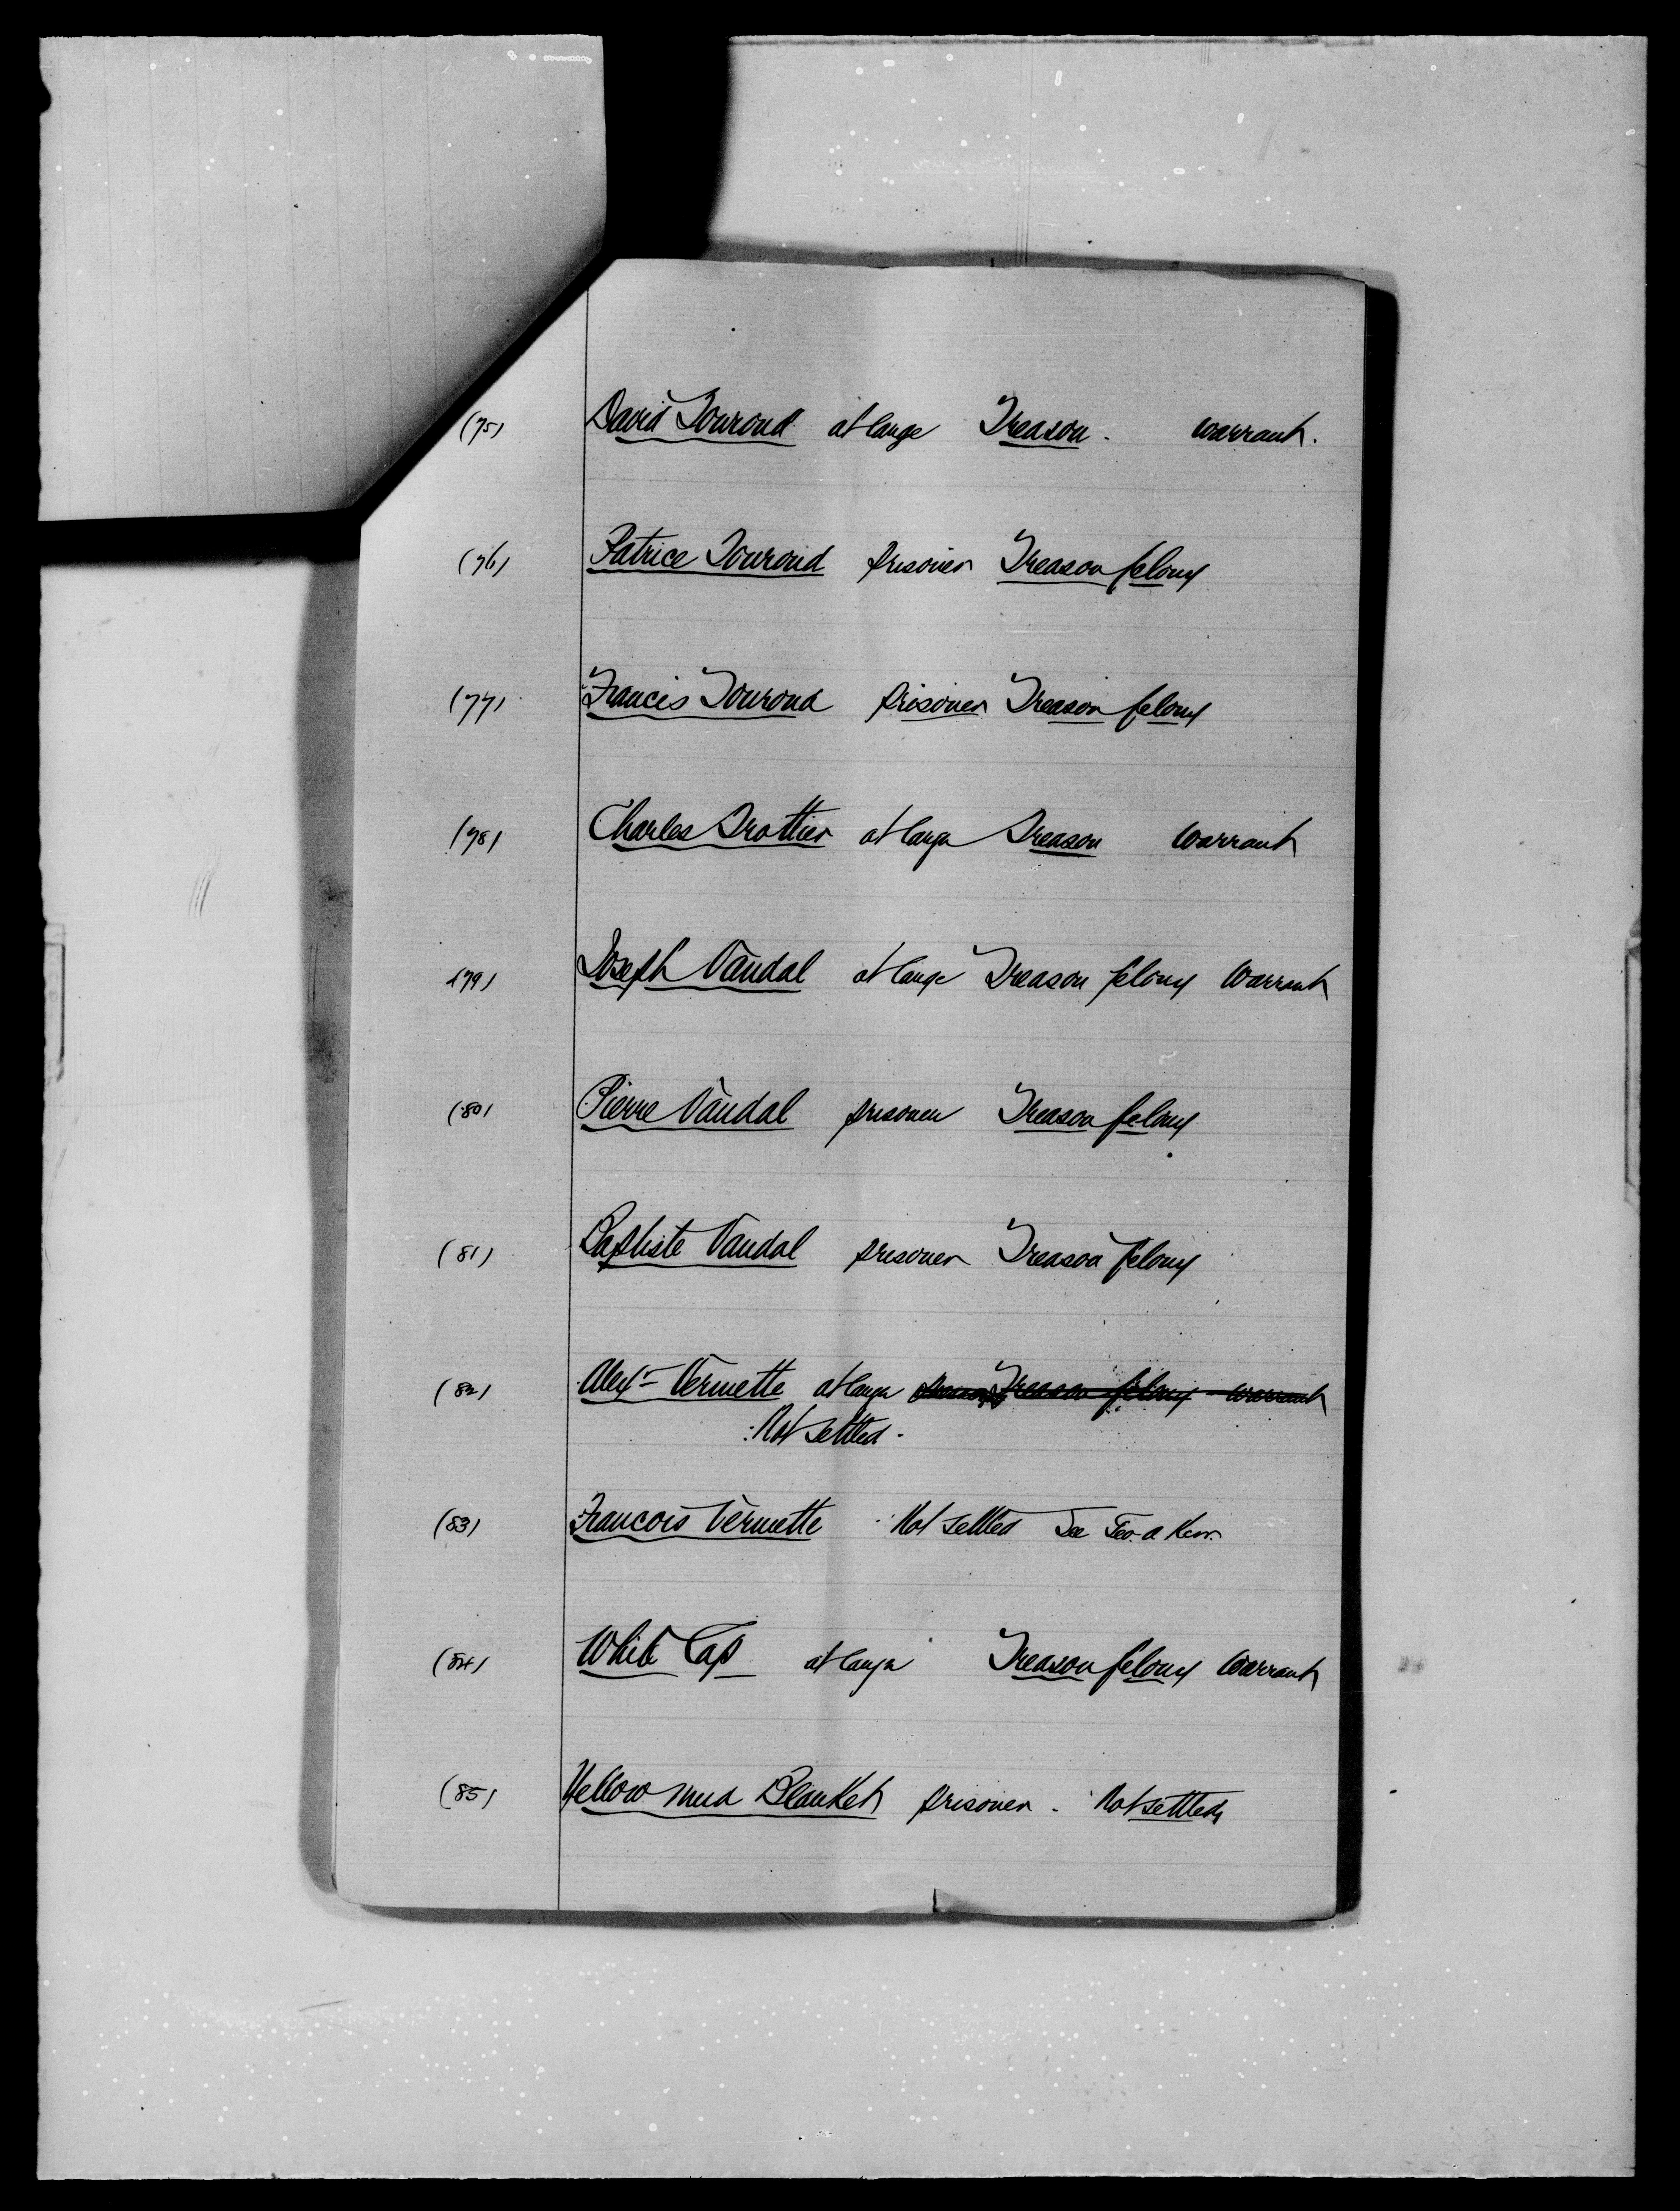 (75) David Tourond at large Treason. warrant.
(76) Patrice Tourond prisoner Treason felony
(77) Francis Tourond prisoner Treason felony
(78) Charles Trottier at large Treason warrant
(79) Joseph Vandal at large Treason felony Warrant
(80) Pierre Vandal prisoner Treason felony
(81) Baptiste Vandal prisoner Treason felony
(82) Alexr Vermette at large Treason felony warrant
Not settled.
(83) Francois Vermette Not settled See Geo. a Kerr.
(84) White Cap at large Treason felony Warrant
(85) Yellow mud Blanket prisoner. Not settled